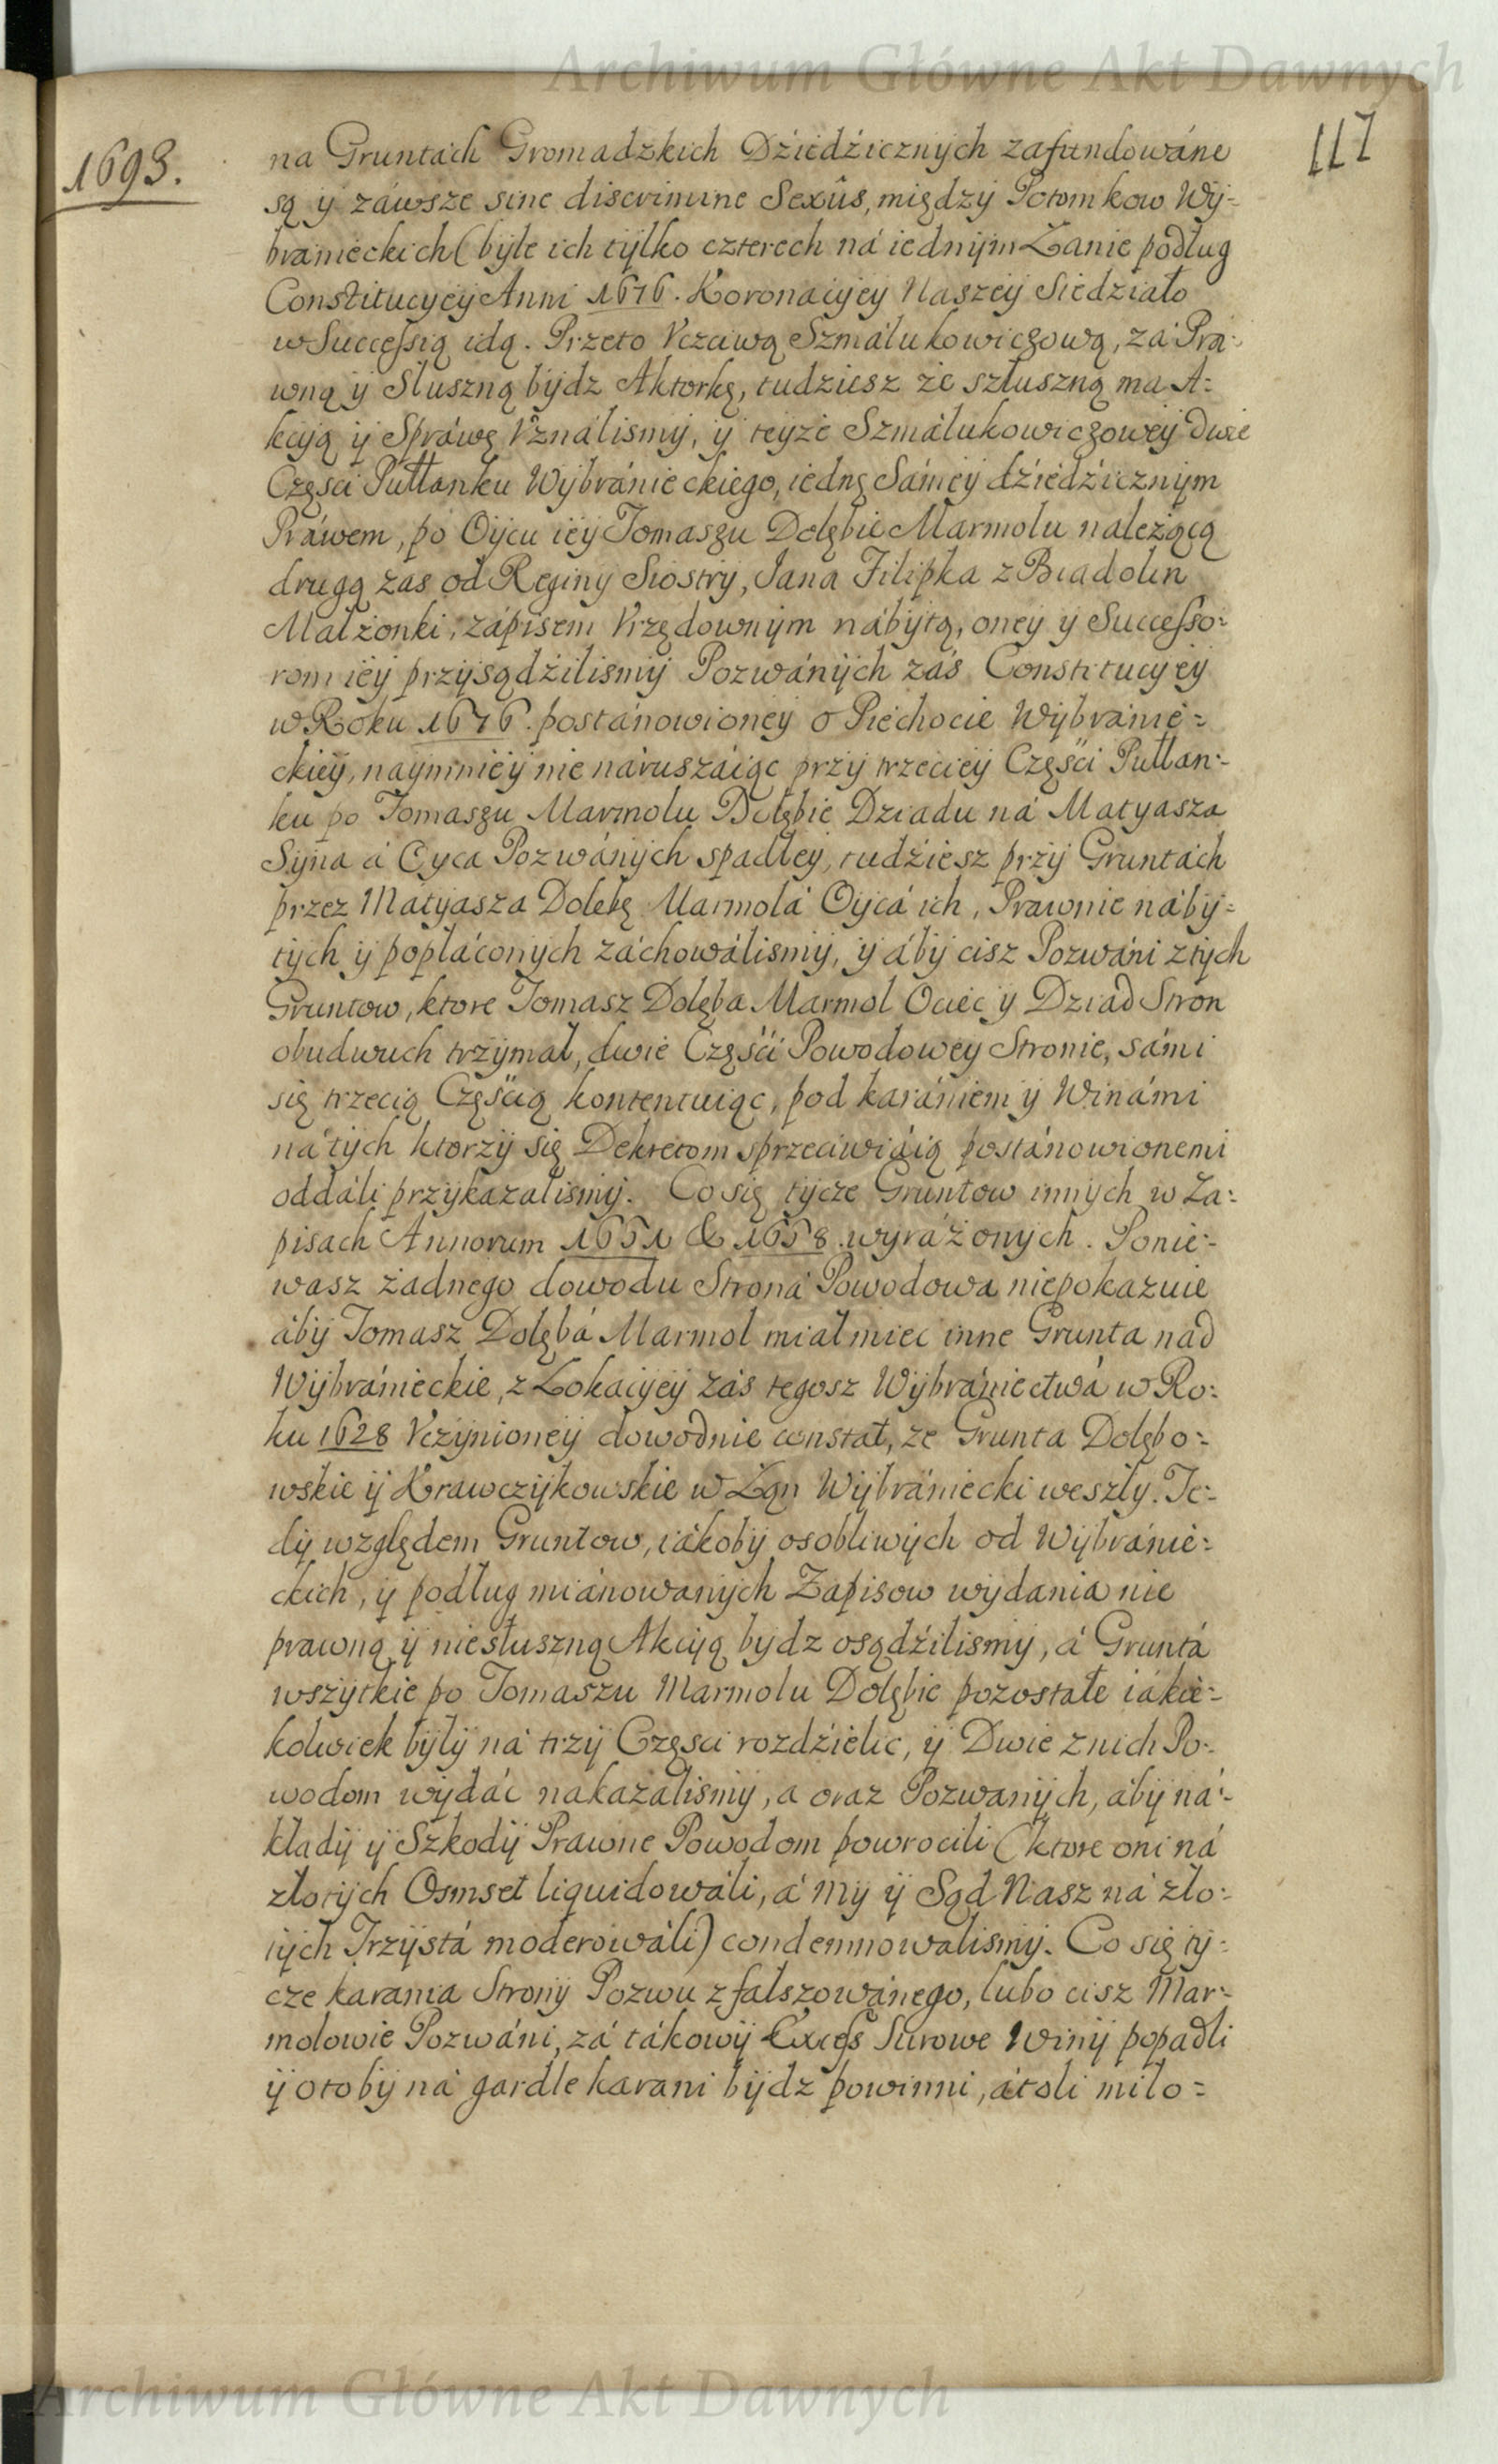 Archiwum Główne Akt Dawnych
1693.
117
na Gruntách Gromadzkich Dźiedźicznych zafundowáne
są ÿ záwsze sine discrimine Sexûs, między Potomkow Wÿ-
branieckich (byle ich tÿlko czterech ná iednÿm Łanie podług
Constitucyey Anni 1676. Koronaciÿey Naszeÿ Siedziało
w Successią idą. Przeto Vczciwą Szmálukowiczową, zá Pra-
wną ÿ Sluszną bÿdz Aktorkę, tudziesz że szłuszną ma A-
kcÿą ÿ Spráwę Vználismÿ, ÿ teyże Szmálukowiczoweÿ Dwie
Częsci Pułłanku Wÿbránieckiego, iednę Sámeÿ dźiedźicznÿm
Práwem, po Oÿcu ieÿ Tomaszu Dolębie Marmolu należącą
drugą zas od Reginÿ Siostrÿ, Jana Filipka z Biadolin
Malżonki, zápisem Vrzędownÿm nábÿtą, oney y Successo-
rom ieÿ przÿsądźilismÿ Pozwánÿch záś Constitucyeÿ
w Roku 1676. postánowioney o Piechocie Wÿbránie-
ckieÿ, naÿmnieÿ nie náruszáiąc przÿ trzecieÿ Części Pułłan-
ku po Tomaszu Marmolu Dolębie Dziadu ná Matyasza
Sÿna á Oyca Pozwánÿch spadłey, tudźiesz przÿ Gruntách
przez Mátyasza Dolebę Marmolá Oÿcá ich, Prawnie nábÿ-
tÿch ÿ popłáconÿch záchowálismÿ, ÿ ábÿ cisz Pozwáni z tÿch
Gruntow, ktore Tomasz Dolęba Marmol Ociec y Dziad Stron
obudwuch trzÿmał, dwie Częśći Powodowey Stronie, sámi
się trzecią Częśćią kontentuiąc, pod karániem ÿ Winámi
ná tÿch ktorzÿ się Dekretom sprzeciwiáią postánowionemi
oddáli przÿkazalismÿ. Co się tÿcze Gruntow innÿch w Za-
pisach Annorum 1651 & 1658. wyráżonÿch. Ponie-
wasz żadnego dowodu Stroná Powodowa niepokazuie
ábÿ Tomasz Dolębá Marmol miał miec inne Grunta nad
Wÿbránieckie, z Lokacÿeÿ zás tegosz Wÿbrániectwá w Ro-
ku 1628 Vczÿnioneÿ dowodnie constat, ze Grunta Dolębo-
wskie ÿ Krawczÿkowskie w Łąn Wÿbrániecki weszlÿ. Te-
dÿ względem Gruntow, iákobÿ osobliwÿch od Wÿbránie-
ckich, ÿ podług miánowanÿch Zapisow wÿdania nie
prawną ÿ niesłuszną Akcÿą bÿdz osądźilismÿ, á Gruntá
wszÿtkie po Tomaszu Marmolu Dolębie pozostałe iákie-
kolwiek bÿlÿ ná trzÿ Częsci rozdźielic, ÿ Dwie z nich Po-
wodom wÿdáć nakazalismÿ, a oraz Pozwanÿch, abÿ ná-
kładÿ ÿ Szkodÿ Prawne Powodom powrocili (ktore oni ná
złotÿch Osmset liquidowáli, á Mÿ ÿ Sąd Nasz ná zło-
tÿch Trzÿstá moderowáli) condemnowalismÿ. Co się tÿ-
cze karania Stronÿ Pozwu zfałszowánego, lubo cisz Mar-
molowie Pozwáni, zá tákowÿ Excess Surowe Winÿ popadli
ÿ otobÿ ná gardle karani bÿdz powinni, átoli miło-
Archiwum Główne Akt Dawnych